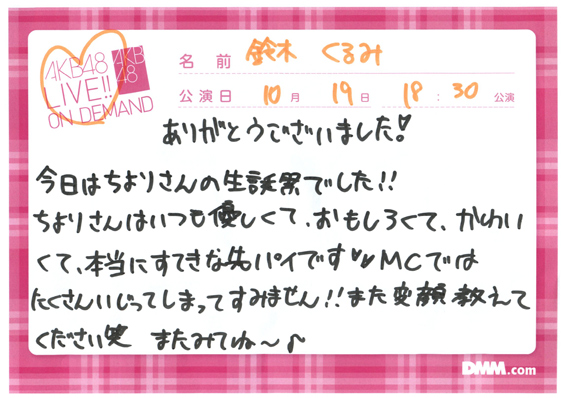 AKB48
LIVE!!
ON DEMAND
AKB
48
名前 鈴木 くるみ
公演日 10月 19日 18:30 公演
ありがとうございました!
今日はちよりさんの生誕祭でした!!
ちよりさんはいつも優しくて、おもしろくて、かわい
くて、本当にすてきな先パイです♥♥MCでは
たくさんいじってしまってすみません!!また変顔教えて
ください笑 またみてね〜♪
DMM.com